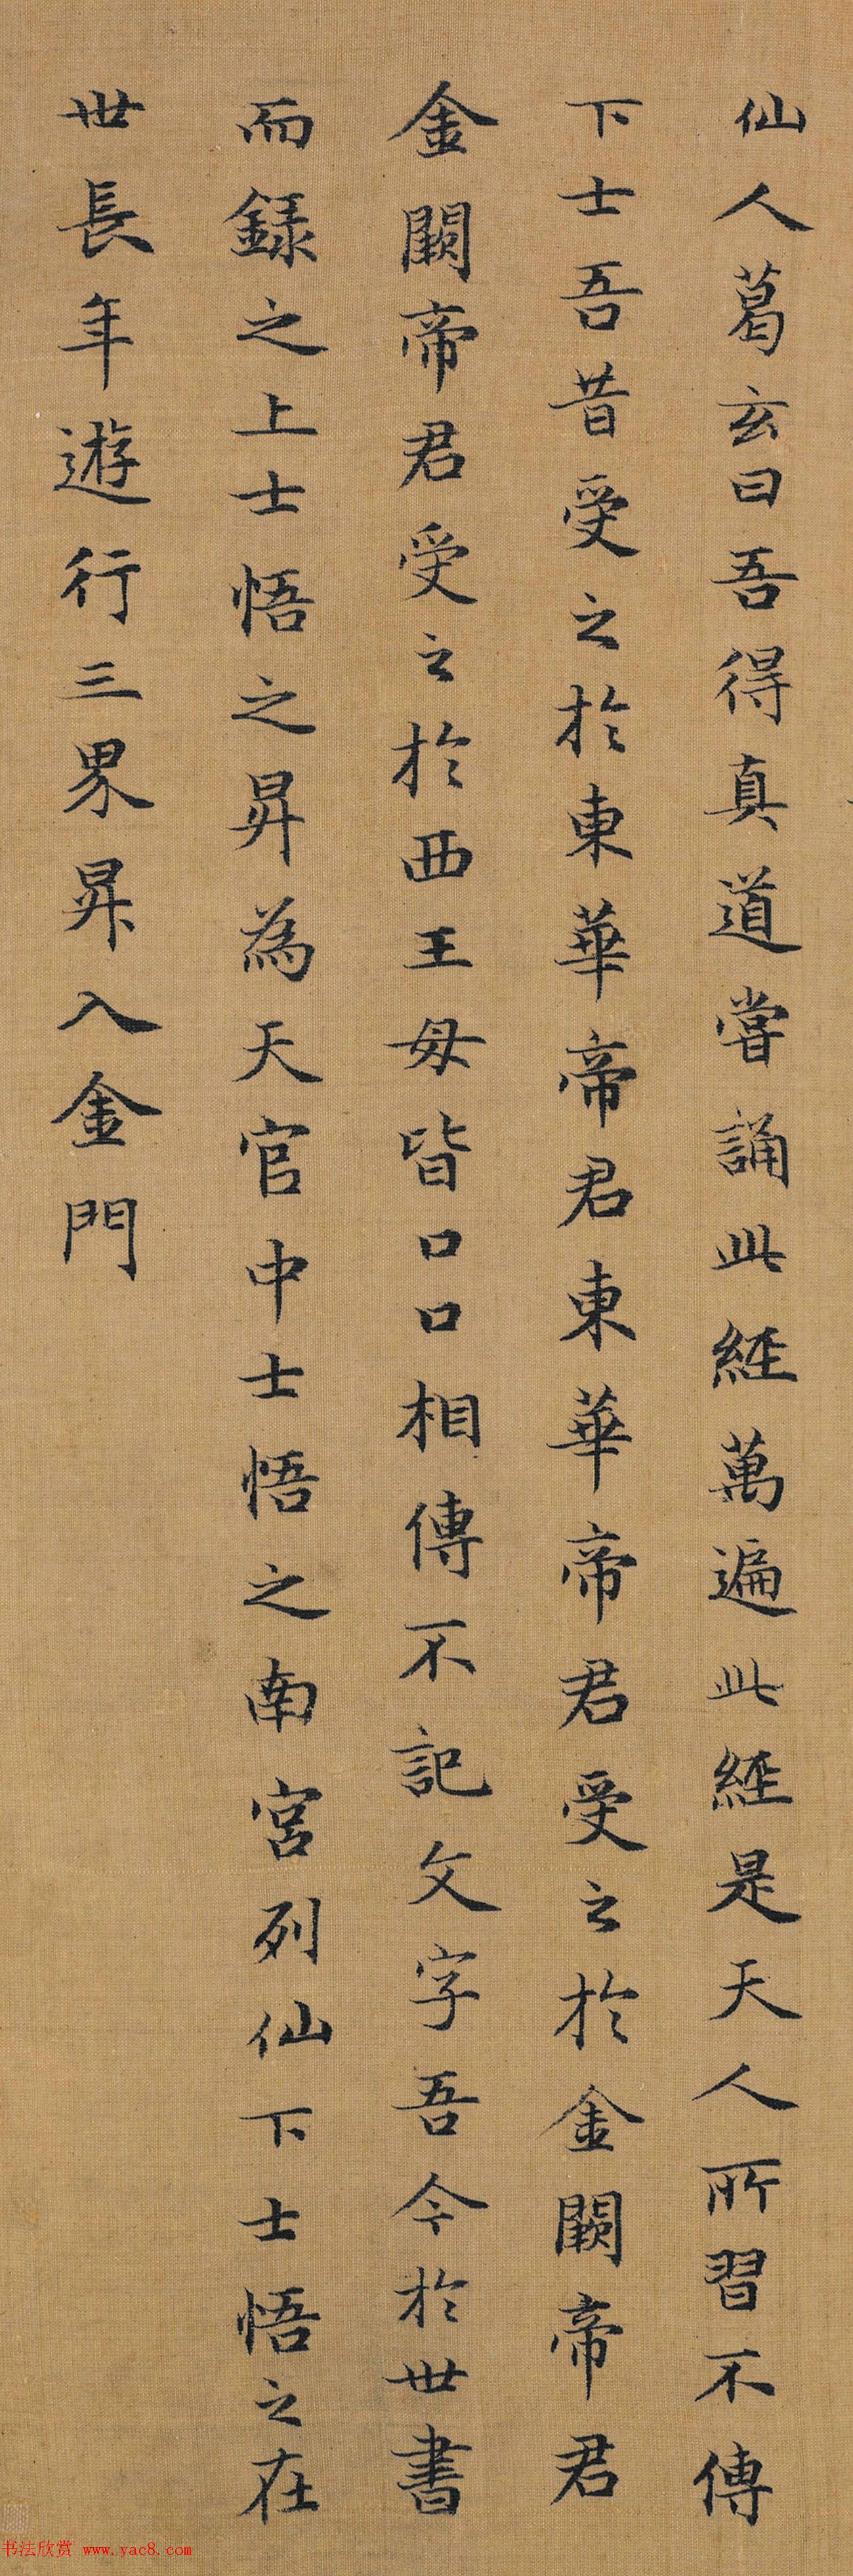 仙人葛玄曰吾得真道嘗誦此經萬遍此經是天人所習不傳
下士吾昔受之於東華帝君東華帝君受之於金闕帝君
金闕帝君受之於西王母皆口口相傳不記文字吾今於世書
而録之上士悟之昇為天官中士悟之南宮列仙下士悟之在
世長年遊行三界昇入金門
书法欣赏 www.yac8.com